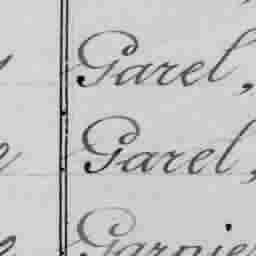 Garel,
Garel,
Garnier